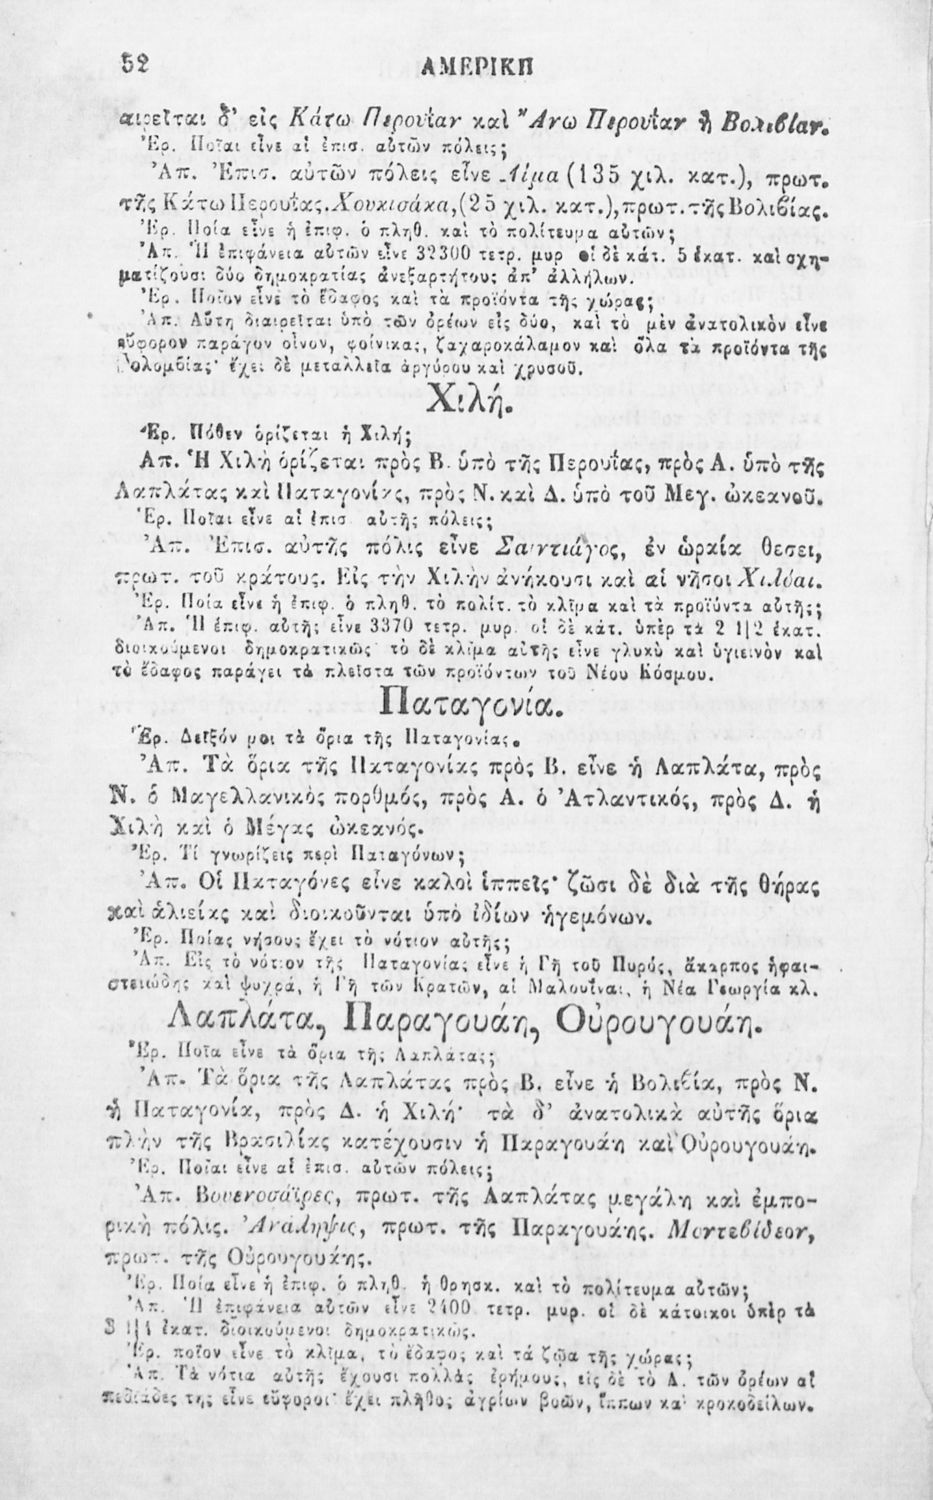 52
ΑΜΕΡΙΚΗ
αιρεῖται δ' εἰς Κάτω Περουΐαν καὶ Ἄνω Περουΐαν ἢ Βολιβίαν.
Ἐρ. Ποῖαι εἶνε αἱ ἐπισ. αὐτῶν πόλεις;
Ἀπ. Ἐπισ. αὐτῶν πόλεις εἶνε Λίμα (135 χιλ. κατ.), πρωτ.
τῆς Κάτω Περουΐας. Χουκισάκα, (25 χιλ. κατ.), πρωτ. τῆς Βολιβίας.
Ἐρ. Ποία εἶνε ἡ ἐπιφ. ὁ πληθ. καὶ τὸ πολίτευμα αὐτῶν;
Ἀπ. Ἡ ἐπιφάνεια αὐτῶν εἶνε 32300 τετρ. μυρ οἱ δὲ κάτ. 5 ἑκατ. καὶ σχη-
ματίζουσι δύο δημοκρατίας ἀνεξαρτήτους ἀπ' ἀλλήλων.
Ἐρ. Ποῖον εἶνε τὸ ἔδαφος καὶ τὰ προϊόντα τῆς χώρας;
Ἀπ. Αὕτη διαιρεῖται ὑπὸ τῶν ὀρέων εἰς δύο, καὶ τὸ μὲν ἀνατολικὸν εἶνε
εὔφορον παράγον οἶνον, φοίνικας, ζαχαροκάλαμον καὶ ὅλα τὰ προϊόντα τῆς
Κολομβίας· ἔχει δὲ μεταλλεῖα ἀργύρου καὶ χρυσοῦ.
Χιλή.
Ἐρ. Πόθεν ὁρίζεται ἡ Χιλή;
Απ. Ἡ Χιλὴ ὁρίζεται πρὸς Β. ὑπὸ τῆς Περουΐας, πρὸς Α. ὑπὸ τῆς
Λαπλάτας καὶ Παταγονίας, πρὸς Ν. καὶ Δ. ὑπὸ τοῦ Μεγ. ὠκεανοῦ.
Ἐρ. Ποῖαι εἶνε αἱ ἐπισ αὐτῆς πόλεις;
Ἀπ. Ἐπισ. αὐτῆς πόλις εἶνε Σαντιάγος, ἐν ὡραίᾳ θεσει,
πρωτ. τοῦ κράτους. Εἰς τὴν Χιλὴν ἀνήκουσι καὶ αἱ νῆσοι Χιλόαι.
Ἐρ. Ποία εἶνε ἡ ἐπιφ. ὁ πληθ. τὸ πολίτ. τὸ κλῖμα καὶ τὰ προϊόντα αὐτῆς;
Ἀπ. Ἡ ἐπιφ. αὐτῆς εἶνε 3370 τετρ. μυρ. οἱ δὲ κάτ. ὑπὲρ τὰ 2 1|2 ἑκατ.
διοικούμενοι δημοκρατικῶς· τὸ δὲ κλῖμα αὐτῆς εἶνε γλυκὺ καὶ ὑγιεινὸν καὶ
τὸ ἔδαφος παράγει τὰ πλεῖστα τῶν προϊόντων τοῦ Νέου Κόσμου.
Παταγονία.
Ἐρ. Δεῖξόν μοι τὰ ὅρια τῆς Παταγονίας.
Ἀπ. Τὰ ὅρια τῆς Παταγονίας πρὸς Β. εἶνε ἡ Λαπλάτα, πρὸς
Ν. ὁ Μαγελλανικὸς πορθμός, πρὸς Α. ὁ Ἀτλαντικός, πρὸς Δ. ἡ
Χιλὴ καὶ ὁ Μέγας ὠκεανός.
Ἐρ. Τί γνωρίζεις περὶ Παταγόνων;
Ἀπ. Οἱ Παταγόνες εἶνε καλοὶ ἱππεῖς· ζῶσι δὲ διὰ τῆς θήρας
καὶ ἁλιείας καὶ διοικοῦνται ὑπὸ ἰδίων ἡγεμόνων.
Ἐρ. Ποίας νήσους ἔχει τὸ νότιον αὐτῆς;
Ἀπ. Εἰς τὸ νότιον τῆς Παταγονίας εἶνε ἡ Γῆ τοῦ Πυρός, ἄκαρπος ἡφαι-
στειώδης καὶ ψυχρά, ἡ Γῆ τῶν Κρατῶν, αἱ Μαλουῖναι, ἡ Νέα Γεωργία κλ.
Λαπλάτα, Παραγουάη, Οὐρουγουάη.
Ἐρ. Ποῖα εἶνε τὰ ὅρια τῆς Λαπλάτας;
Ἀπ. Τὰ ὅρια τῆς Λαπλάτας πρὸς Β. εἶνε ἡ Βολιβία, πρὸς Ν.
ἡ Παταγονία, πρὸς Δ. ἡ Χιλή· τὰ δ' ἀνατολικὰ αὐτῆς ὅρια
πλὴν τῆς Βρασιλίας κατέχουσιν ἡ Παραγουάη καὶ Οὐρουγουάη.
Ἐρ. Ποῖαι εἶνε αἱ ἐπισ. αὐτῶν πόλεις;
Ἀπ. Βουενοσάϊρες, πρωτ. τῆς Λαπλάτας μεγάλη καὶ ἐμπο-
ρικὴ πόλις. Ἀνάληψις, πρωτ. τῆς Παραγουάης. Μοντεβίδεον,
πρωτ. τῆς Οὐρουγουάης.
Ἐρ. Ποία εἶνε ἡ ἐπιφ. ὁ πληθ. ἡ θρησκ. καὶ τὸ πολίτευμα αὐτῶν;
Ἀπ. Ἡ ἐπιφάνεια αὐτῶν εἶνε 2400 τετρ. μυρ. οἱ δὲ κάτοικοι ὑπὲρ τὰ
3 1|4 ἑκατ. διοικούμενοι δημοκρατικῶς.
Ἐρ. ποῖον εἶνε τὸ κλῖμα, τὸ ἔδαφος καὶ τὰ ζῶα τῆς χώρας;
Ἀπ. Τὰ νότια αὐτῆς ἔχουσι πολλὰς ἐρήμους, εἰς δὲ τὸ Α. τῶν ὀρέων αἱ
πεδιάδες της εἶνε εὔφοροι· ἔχει πλῆθος ἀγρίων βοῶν, ἵππων και κροκοδείλων.